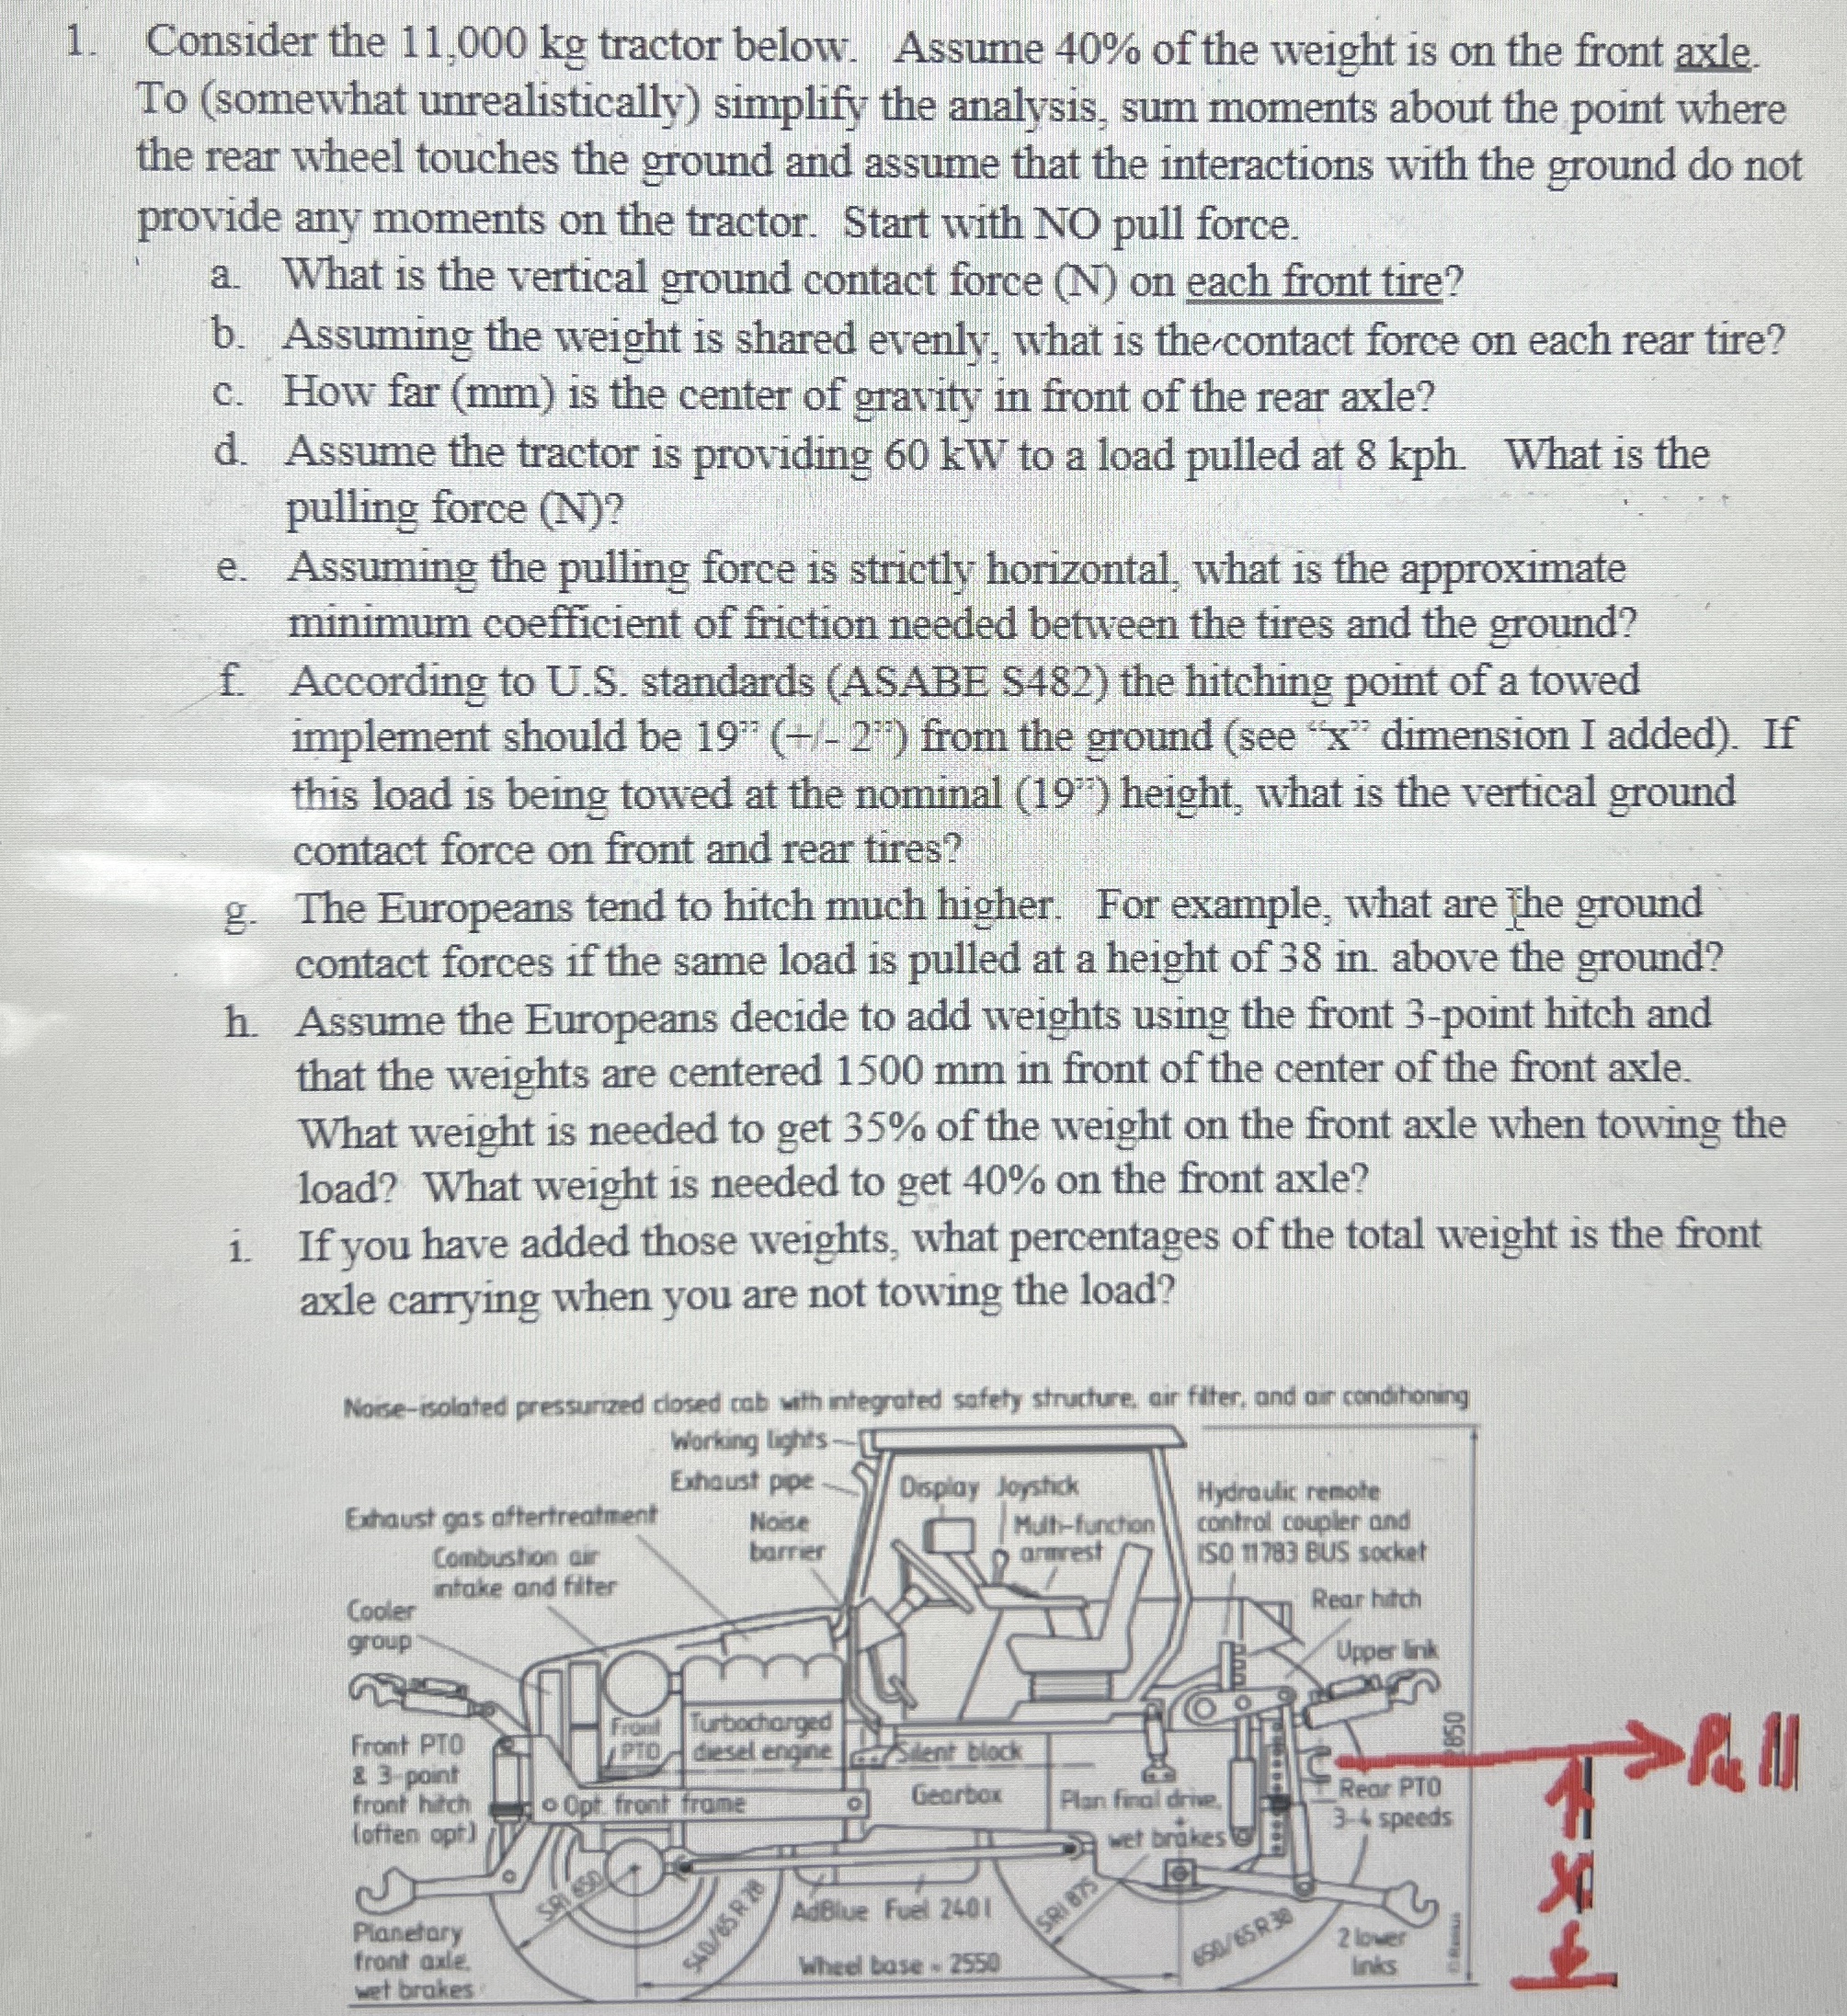 1. Consider the 11,000 kg tractor below. Assume 40% of the weight is on the front axle.
To (somewhat unrealistically) simplify the analysis, sum moments about the point where
the rear wheel touches the ground and assume that the interactions with the ground do not
provide any moments on the tractor. Start with NO pull force.
a. What is the vertical ground contact force (N) on each front tire?
b. Assuming the weight is shared evenly, what is the contact force on each rear tire?
c. How far (mm) is the center of gravity in front of the rear axle?
d. Assume the tractor is providing 60 kW to a load pulled at 8 kph. What is the
pulling force (N)?
e. Assuming the pulling force is strictly horizontal, what is the approximate
minimum coefficient of friction needed between the tires and the ground?
f. According to U.S. standards (ASABE S482) the hitching point of a towed
implement should be 19” (+/- 2”) from the ground (see “x” dimension I added). If
this load is being towed at the nominal (19”) height, what is the vertical ground
contact force on front and rear tires?
g. The Europeans tend to hitch much higher. For example, what are the ground
contact forces if the same load is pulled at a height of 38 in. above the ground?
h. Assume the Europeans decide to add weights using the front 3-point hitch and
that the weights are centered 1500 mm in front of the center of the front axle.
What weight is needed to get 35% of the weight on the front axle when towing the
load? What weight is needed to get 40% on the front axle?
i. If you have added those weights, what percentages of the total weight is the front
axle carrying when you are not towing the load?
Noise-isolated pressurized closed cab with integrated safety structure, air filter, and air conditioning
Working lights
Exhaust pipe
Display Joystick
Hydraulic remote
control coupler and
ISO 11783 BUS socket
Exhaust gas aftertreatment
Noise
barrier
Multi-function
armrest
Combustion air
intake and filter
Rear hitch
Cooler
group
Upper link
Front
PTO
Turbocharged
diesel engine
Silent block
2850
Pull
Front PTO
& 3-point
front hitch
(often opt.)
Opt. front frame
Gearbox
Plan final drive,
wet brakes
Rear PTO
3-4 speeds
x
SRI 650
540/65 R 28
AdBlue Fuel 240 l
SRI 875
650/65 R 38
Planetary
front axle,
wet brakes
Wheel base = 2550
2 lower
links
© Renius